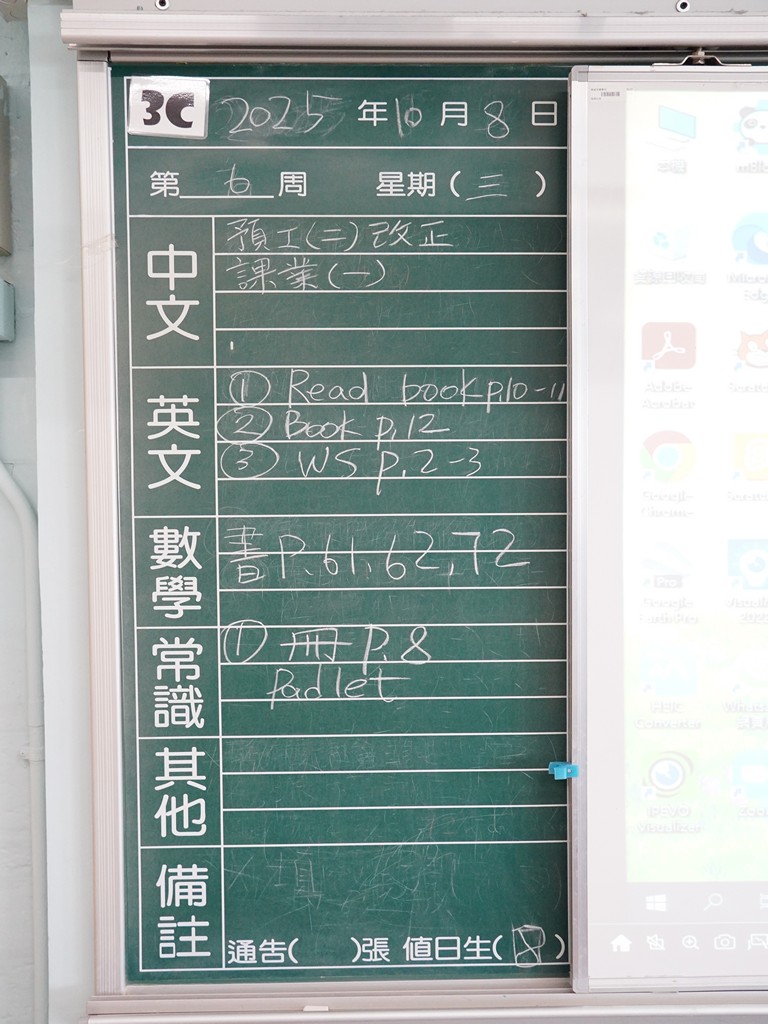 3C 2025 年 10 月 8 日
第 六 周 星期 ( 三 )
中文
預工(二)改正
課業(一)
英文
① Read book p.10-11
② Book p.12
③ WS p.2-3
數學
書 P.61, 62, 72
常識
① 冊 P.8
Padlet
其他
備註
通告( )張 值日生( 8 )
Adobe Acrobat
Google Chrome
Google Earth Pro
Converter
IPEVO Visualizer